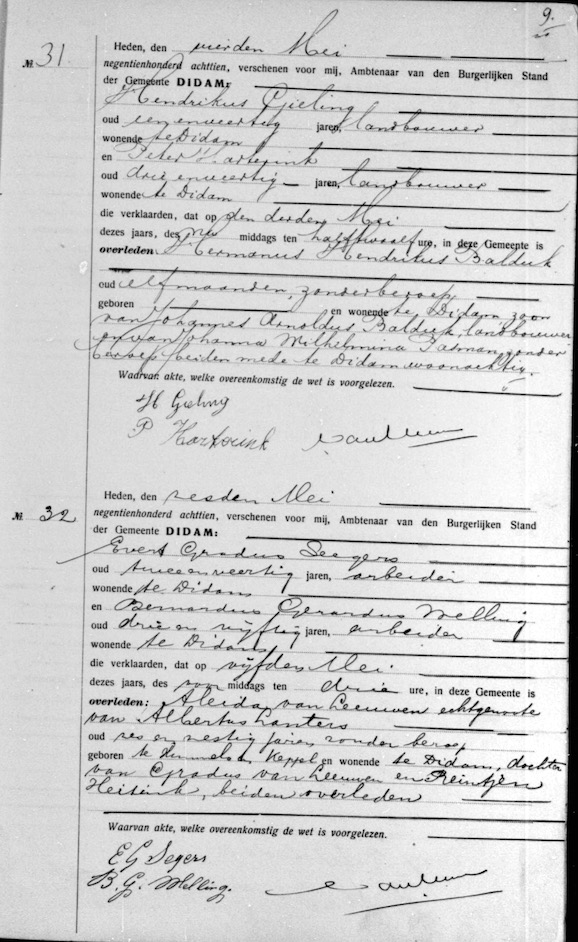 9.
№ 31.
Heden, den vierden Mei
negentienhonderd achttien, verschenen voor mij, Ambtenaar van den Burgerlijken Stand
der Gemeente DIDAM:
Hendrikus Gieling
oud eenenveertig jaren, landbouwer
wonende te Didam
en Peter Harterink
oud drieenveertig jaren, landbouwer
wonende te Didam
die verklaarden, dat op den derden Mei
dezes jaars, des middags ten half twaalf ure, in deze Gemeente is
overleden: Hermanus Hendrikus Balduk
oud elf maanden, zonder beroep,
geboren en wonende te Didam, zoon
van Johannes Arnoldus Balduk, landbouwer
en van Johanna Wilhelmina Patman, zonder
beroep, beiden mede te Didam woonachtig.
Waarvan akte, welke overeenkomstig de wet is voorgelezen.
H Gieling
P Harterink
№ 32
Heden, den zesden Mei
negentienhonderd achttien, verschenen voor mij, Ambtenaar van den Burgerlijken Stand
der Gemeente DIDAM:
Evert Gradus Seegers
oud tweeenveertig jaren, arbeider
wonende te Didam
en Bernardus Gerardus Welling
oud drie en vijftig jaren, arbeider
wonende te Didam
die verklaarden, dat op vijfden Mei
dezes jaars, des voor middags ten drie ure, in deze Gemeente is
overleden: Aleida van Leeuwen echtgenoote
van Albertus Lanters
oud zes en zestig jaren zonder beroep
geboren te Hummelo en Keppel en wonende te Didam, dochter
van Gradus van Leeuwen en Reintjen
Heitink, beiden overleden
Waarvan akte, welke overeenkomstig de wet is voorgelezen.
E G Segers
B. G. Welling.